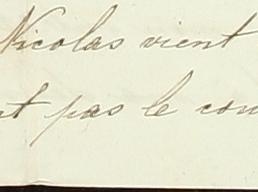 Nicolas vient
nt pas le con